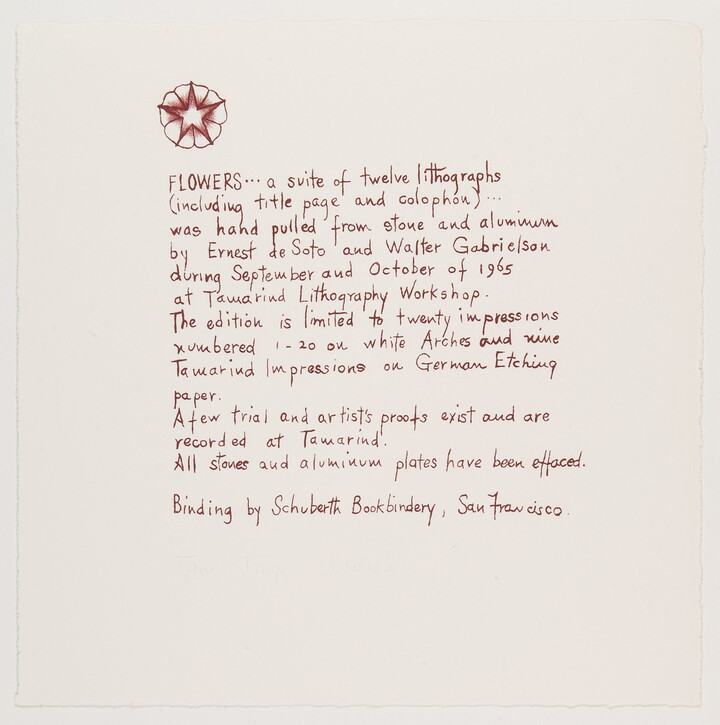 FLOWERS... a suite of twelve lithographs
(including title page and colophon)...
was hand pulled from stone and aluminum
by Ernest de Soto and Walter Gabrielson
during September and October of 1965
at Tamarind Lithography Workshop.
The edition is limited to twenty impressions
numbered 1-20 on white Arches and nine
Tamarind Impressions on German Etching
paper.
A few trial and artist's proofs exist and are
recorded at Tamarind.
All stones and aluminum plates have been effaced.
Binding by Schuberth Bookbindery, San Francisco.